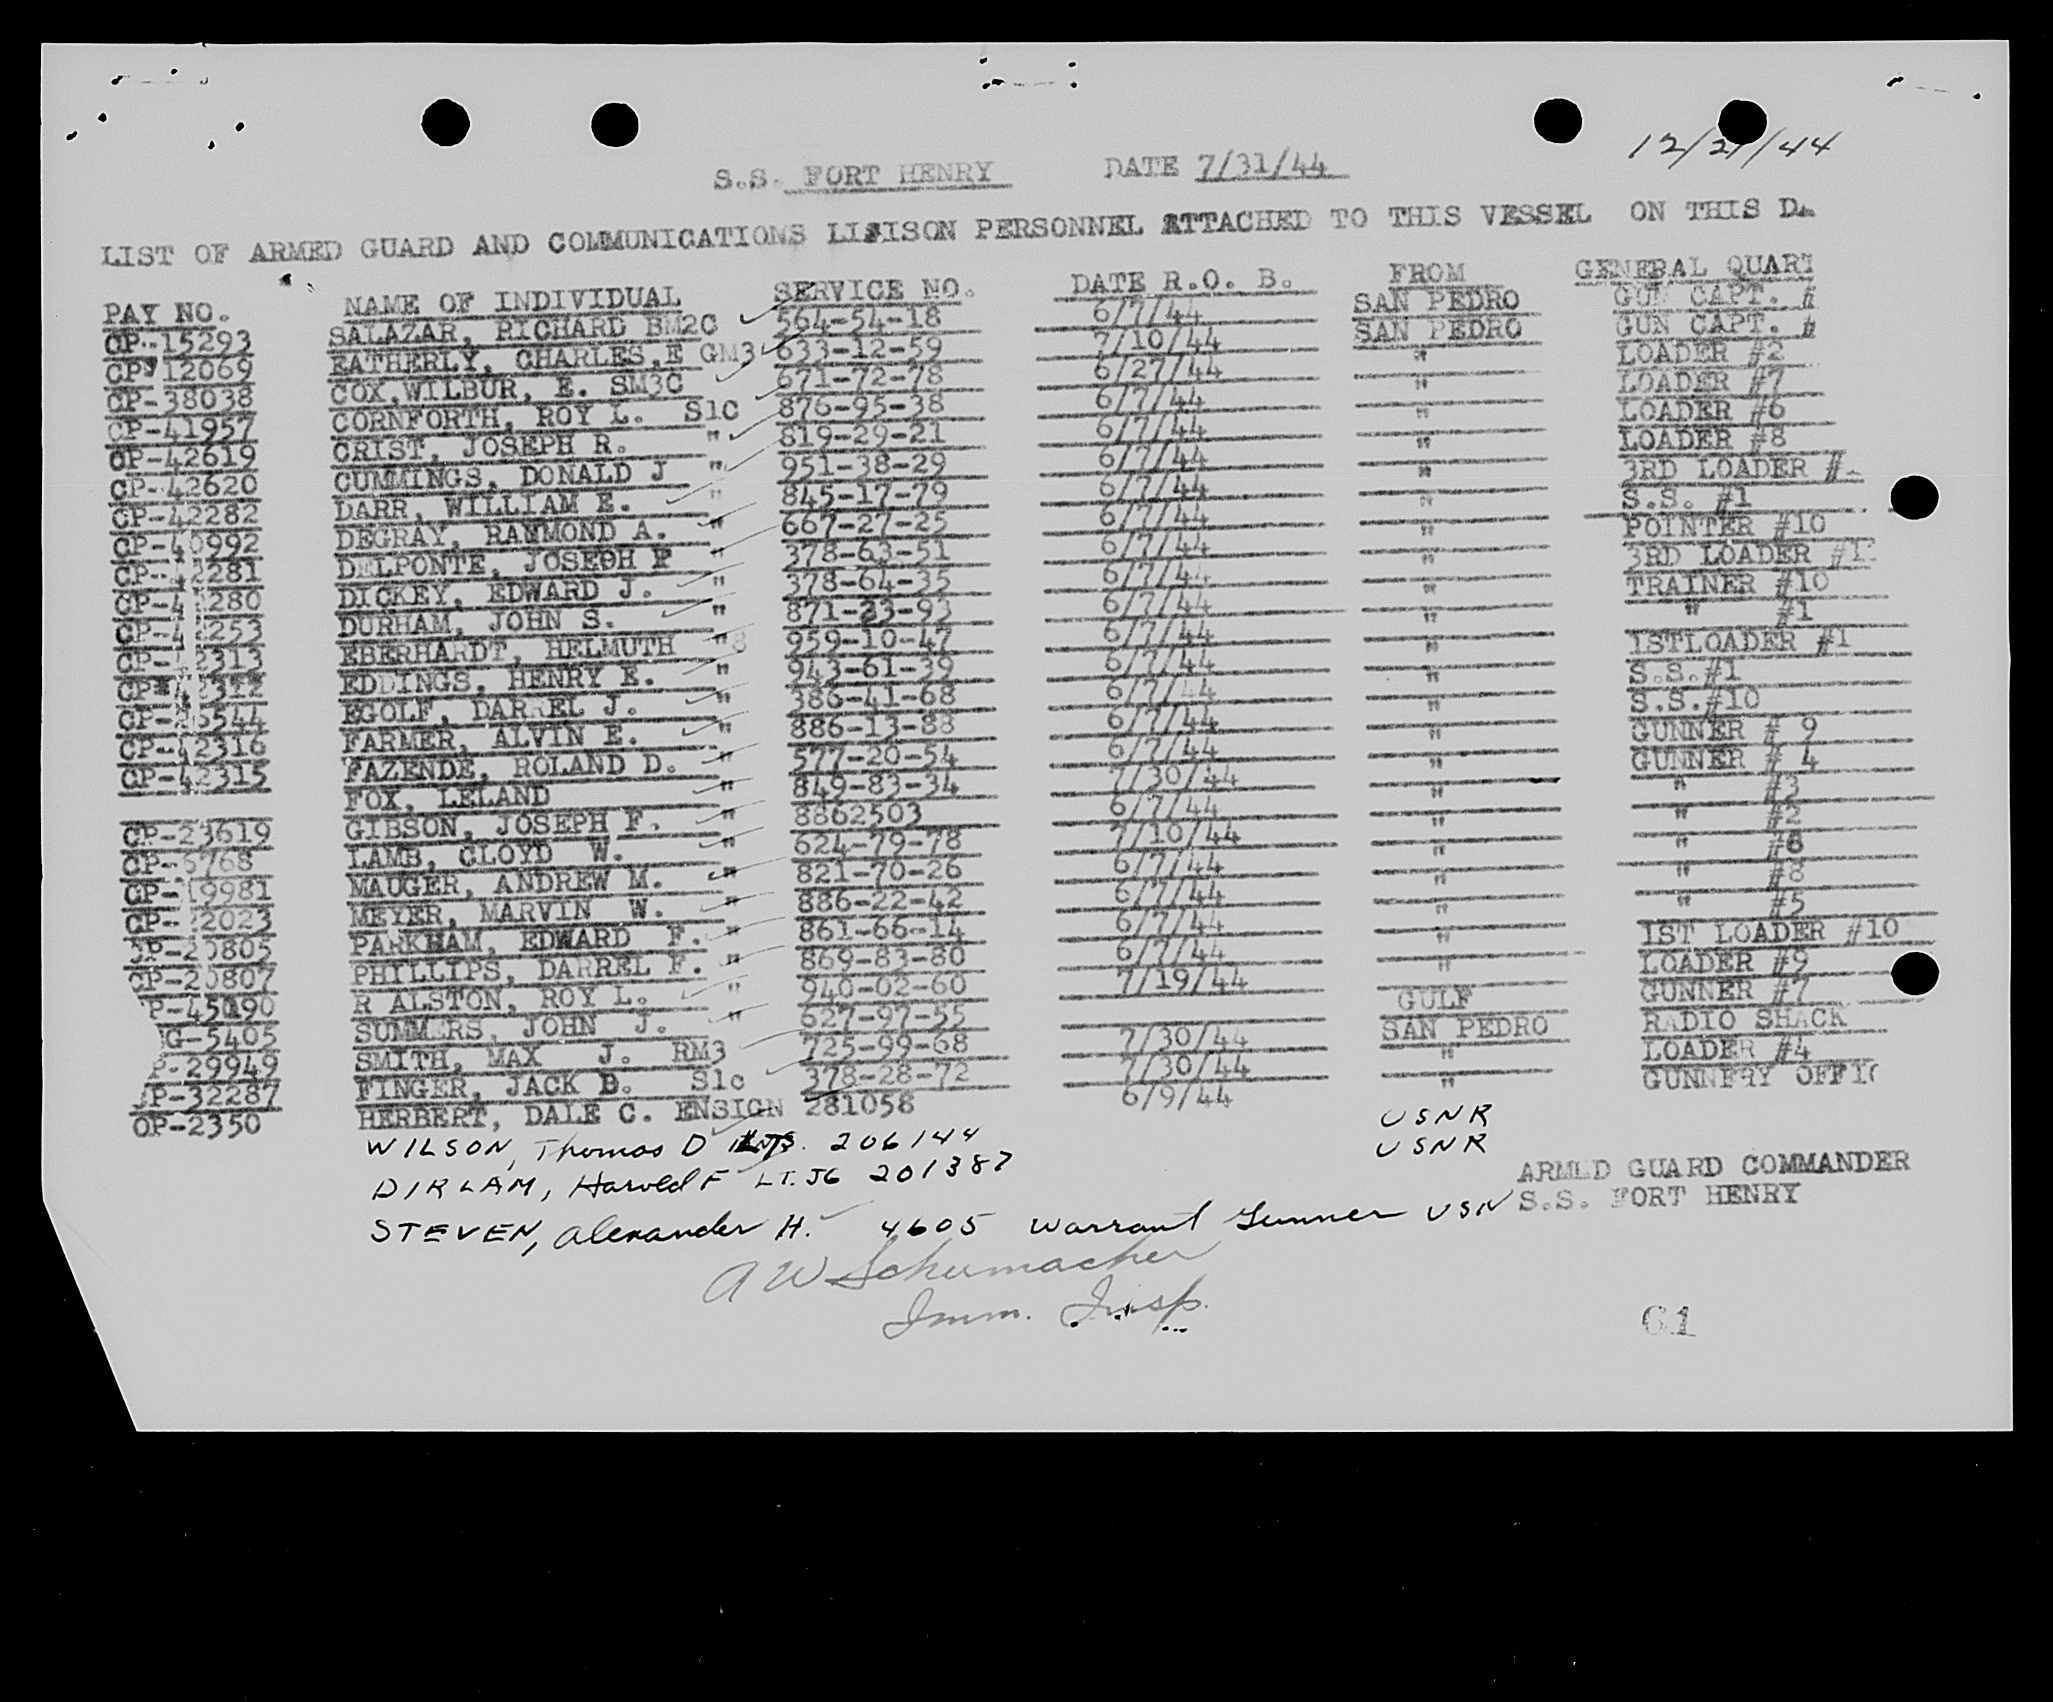 12/21/44
S.S. FORT HENRY DATE 7/31/44
LIST OF ARMED GUARD AND COMMUNICATIONS LIAISON PERSONNEL ATTACHED TO THIS VESSEL ON THIS
PAY NO. NAME OF INDIVIDUAL SERVICE NO. DATE R.O.B. FROM GENERAL QUART
CP-15293 SALAZAR, RICHARD BM2C 564-54-18 6/7/44 SAN PEDRO GUN CAPT. #
CP-12069 EATHERLY, CHARLES,E GM3 633-12-59 7/10/44 SAN PEDRO GUN CAPT. #
CP-38038 COX,WILBUR, E. SM3C 671-72-78 6/27/44 " LOADER #2
CP-41957 CORNFORTH, ROY L. S1C 876-95-38 6/7/44 " LOADER #7
CP-42619 CRIST, JOSEPH R. " 819-29-21 6/7/44 " LOADER #6
CP-42620 CUMMINGS, DONALD J " 951-38-29 6/7/44 " LOADER #8
CP-42282 DARR, WILLIAM E. " 845-17-79 6/7/44 " 3RD LOADER #
CP-40992 DEGRAY, RAYMOND A. " 667-27-25 6/7/44 " S.S. #1
CP-42281 DELPONTE, JOSEPH P " 378-63-51 6/7/44 " POINTER #10
CP-4 280 DICKEY, EDWARD J. " 378-64-35 6/7/44 " 3RD LOADER #1
CP-42253 DURHAM, JOHN S. " 871-23-93 6/7/44 " TRAINER #10
CP-42313 EBERHARDT, HELMUTH " 959-10-47 6/7/44 " " #1
CP-42312 EDDINGS, HENRY E. " 943-61-39 6/7/44 " 1STLOADER #1
CP- 6544 EGOLF, DARREL J. " 386-41-68 6/7/44 " S.S.#1
CP-42316 FARMER, ALVIN E. " 886-13-88 6/7/44 " S.S.#10
CP-42315 FAZENDE, ROLAND D. " 577-20-54 6/7/44 " GUNNER # 9
FOX, LELAND " 849-83-34 7/30/44 " GUNNER # 4
CP-23619 GIBSON, JOSEPH F. " 8862503 6/7/44 " " #3
CP-6768 LAMB, CLOYD W. " 624-79-78 7/10/44 " " #2
CP-19981 MAUGER, ANDREW M. " 821-70-26 6/7/44 " " #6
CP-22023 MEYER, MARVIN W. " 886-22-42 6/7/44 " " #8
CP-20805 PARKHAM, EDWARD F. " 861-66-14 6/7/44 " " #5
CP-20807 PHILLIPS, DARREL F. " 869-83-80 6/7/44 " 1ST LOADER #10
P-45090 R ALSTON, ROY L. " 940-02-60 7/19/44 " LOADER #9
G-5405 SUMMERS, JOHN J. " 627-97-55 GULF GUNNER #7
P-29949 SMITH, MAX J. RM3 725-99-68 7/30/44 SAN PEDRO RADIO SHACK
P-32287 FINGER, JACK D. S1c 378-28-72 7/30/44 " LOADER #4
OP-2350 HERBERT, DALE C. ENSIGN 281058 6/9/44 " GUNNERY OFFIC
WILSON, Thomas D 206144 USNR
DIRLAM, Harold F LT.JG 201387 USNR
ARMED GUARD COMMANDER
S.S. FORT HENRY
STEVEN, Alexander H. 4605 Warrant Gunner USN
A W Schumacher
Imm. Insp.
61